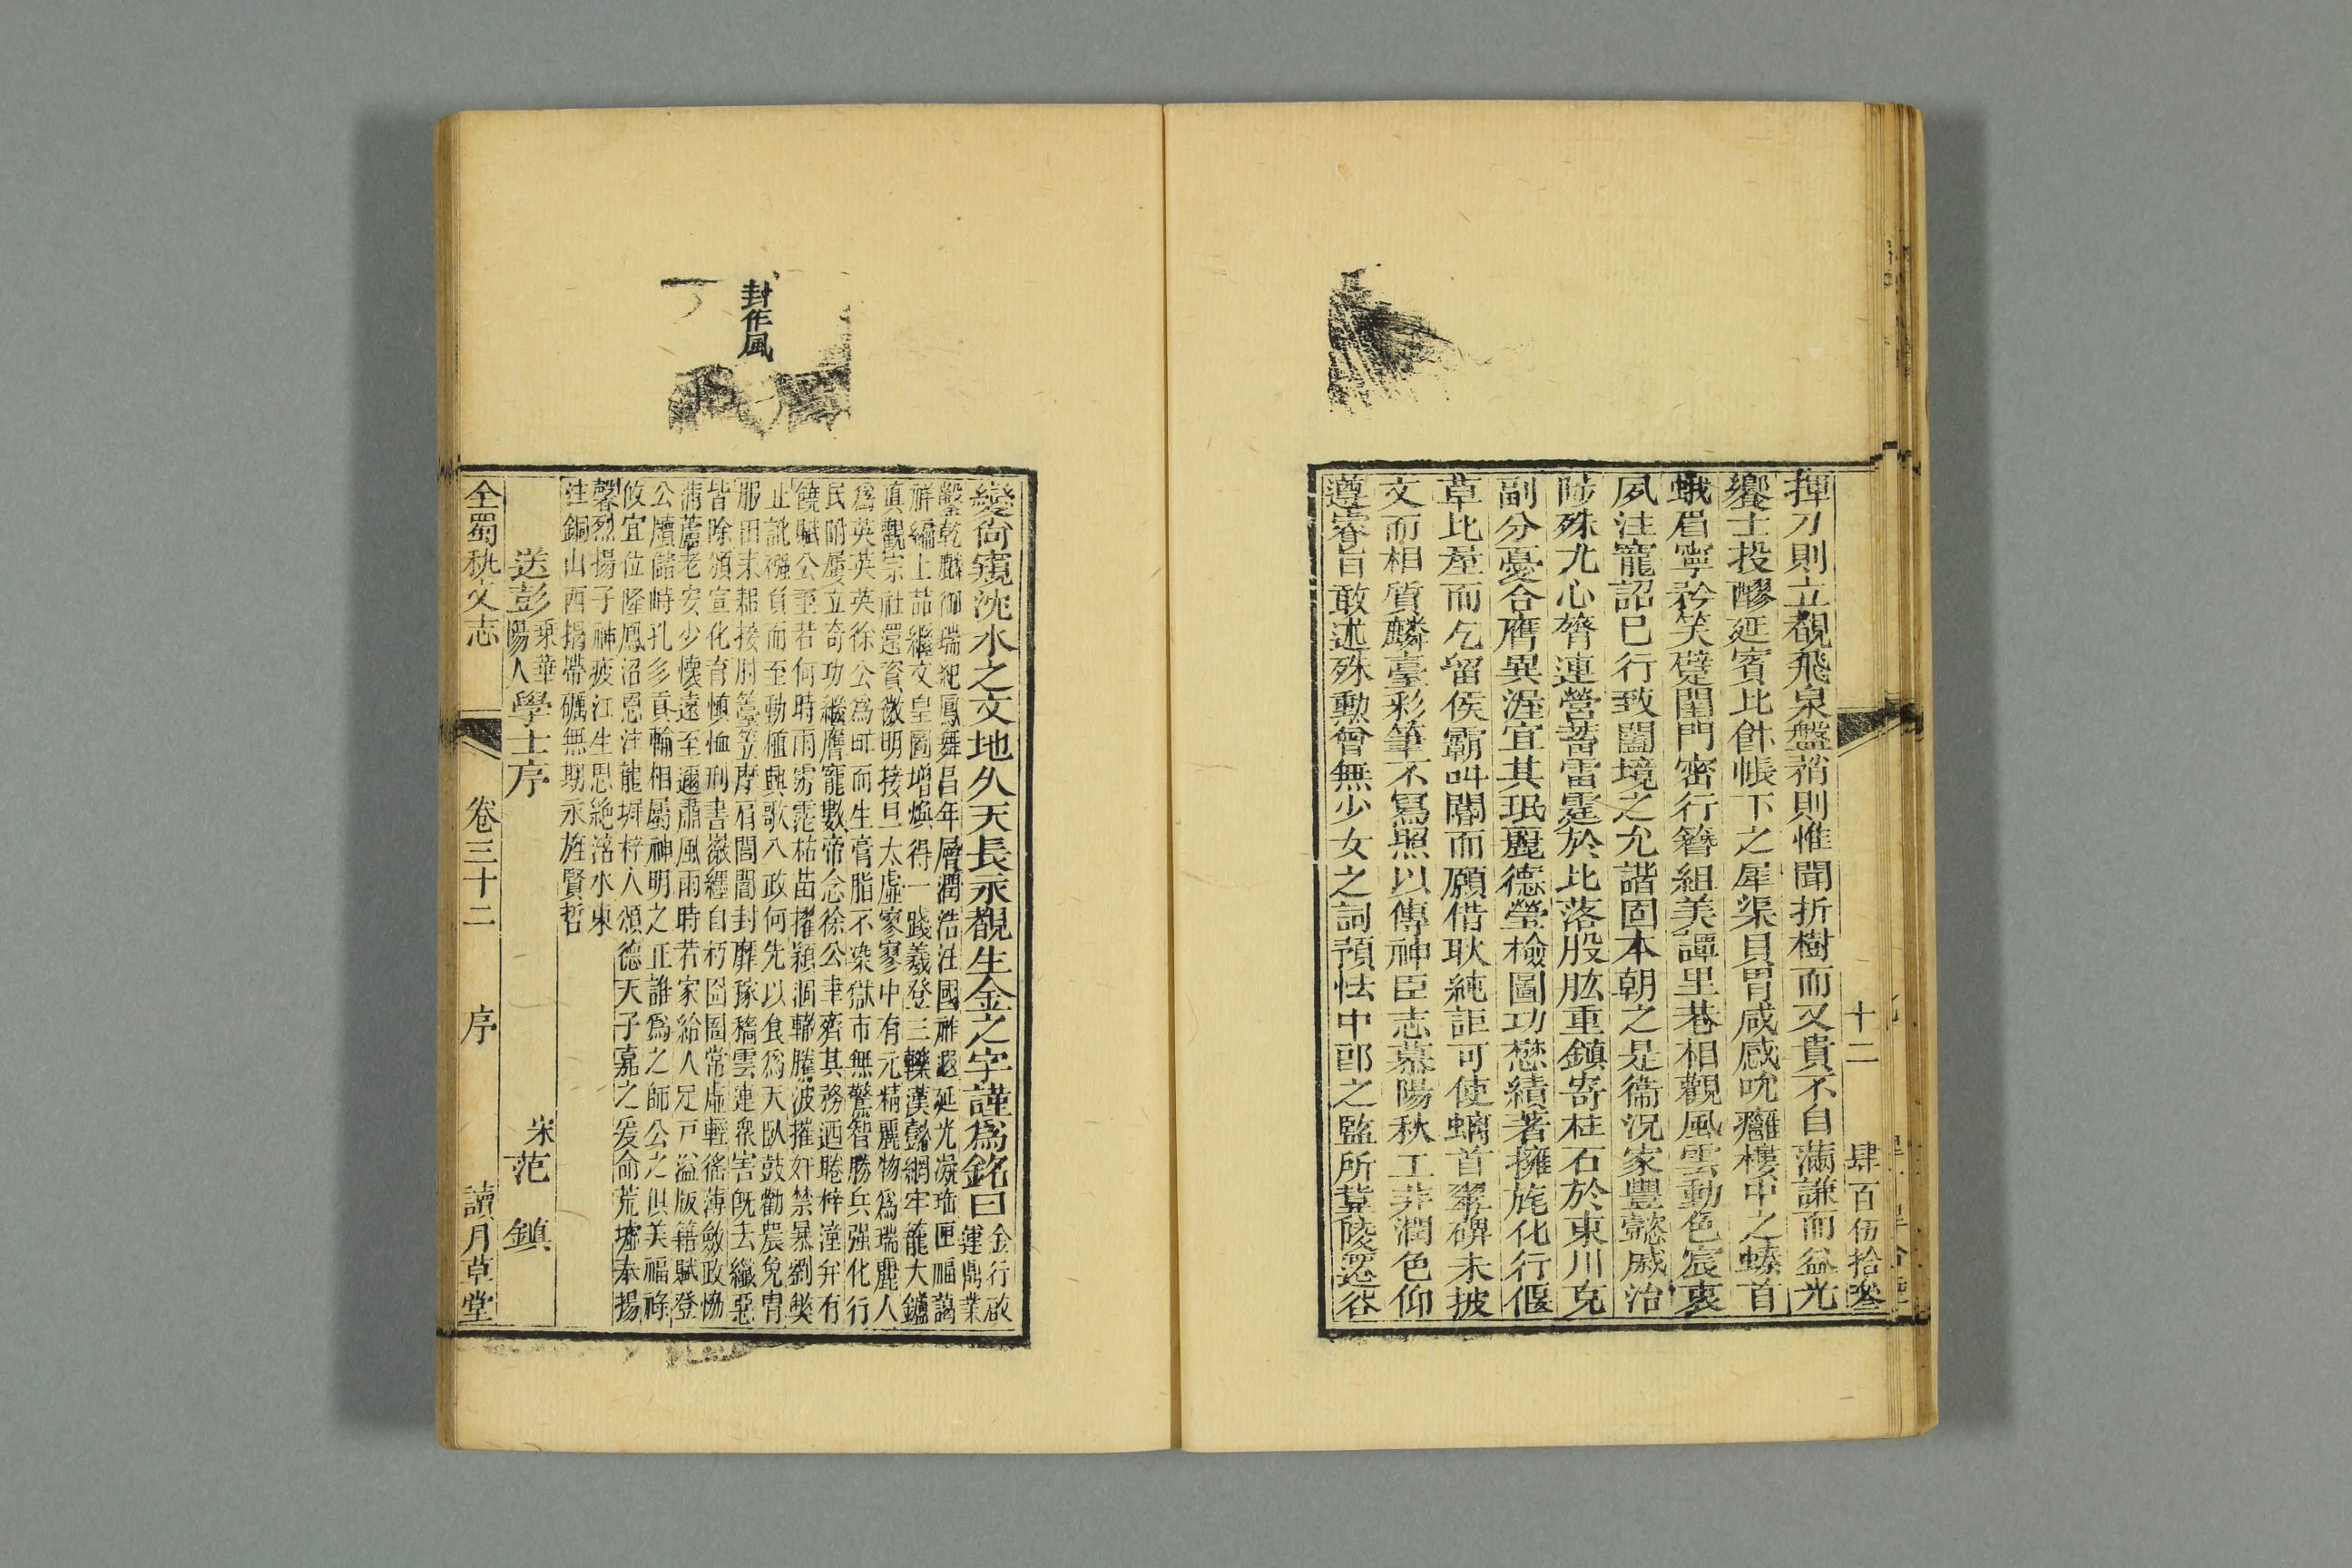 十二 肆百伍拾叄
揮刀則立覩飛泉盤矟則惟聞折樹而又貴不自滿謙而益光
饗士投醪延賓比飰帳下之犀渠貝胄咸感吮癰樓中之螓首
蛾眉寧矜笑躄閨門密行簪組美譚里巷相觀風雲動色宸衷
夙注寵詔已行致闔境之允諧固本朝之是衞況家豐懿戚治
陟殊尤心膂連營蓄雷霆於比落股肱重鎮寄柱石於東川克
副分憂合膺異渥宜其珉麗德瑩檢圖功懋績著擁旄化行偃
草比葦而乞留侯霸叫閽而願借耿純詎可使螭首翠碑未披
文而相質麟臺彩筆不寫照以傳神臣志慕陽秋工非潤色仰
遵睿旨敢述殊勲曾無少女之詞預怯中郎之監所冀陵遷谷
封作風
變尙窺沈水之文地久天長永覩生金之字謹爲銘曰 金行啟
運鼎業
鑿乾麟御瑞紀鳳舞昌年層潤浩注國祚遐延光凝瑶匣福藹
祥編上茹繼文皇圖增煥得一踐義登三轢漢彭網牢籠大鑪
眞觀宗社還資徽明接旦太虛寥寥中有元精麗物爲瑞麗人
爲英英英徐公爲時而生膏脂不染獄市無驚智勝兵强化行
民附屢立奇功繼膺寵數帝念徐公聿齊其務迺睠梓潼弁有
饒賦公至若何時雨雱霑枯苗擢穎涸轍騰波摧奸禁暴劉獘
止訛襁負而至動植興歌八政何先以食爲天臥鼓勸農免胄
服田耒耜接肘簦笠摩肩閭閻封靡稼穡雲連衆害旣去纖惡
皆除頒宣化育愼恤刑書徽纆自朽囹圄常虛輕徭薄斂政惕
蒲蘆老安少懷遠至邇肅風雨時若家給人足戸溢版籍賦登
公廪儲峙孔多貢輸相屬神明之正誰爲之師公之俱美福祿
攸宜位隆鳳沼恩注龍墀梓人頌德天子嘉之爰命荒墟奉揚
馨烈揚子神疲江生思絶涪水東
注銅山西揭帶礪無期永旌賢哲
送彭乘華陽人學士序 宋范 鎮
全蜀秇文志 卷三十二 序 讀月草堂